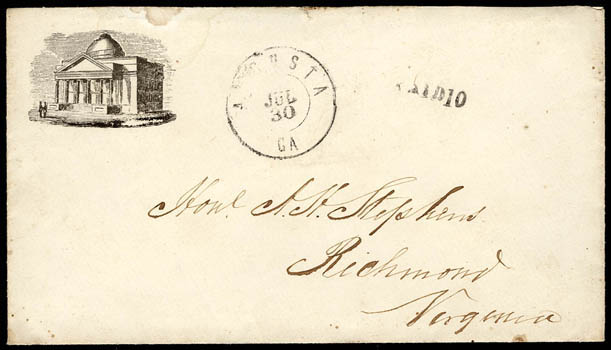 AUGUSTA
JUL
30
GA
PAID 10
Hon. A. H. Stephens
Richmond
Virginia